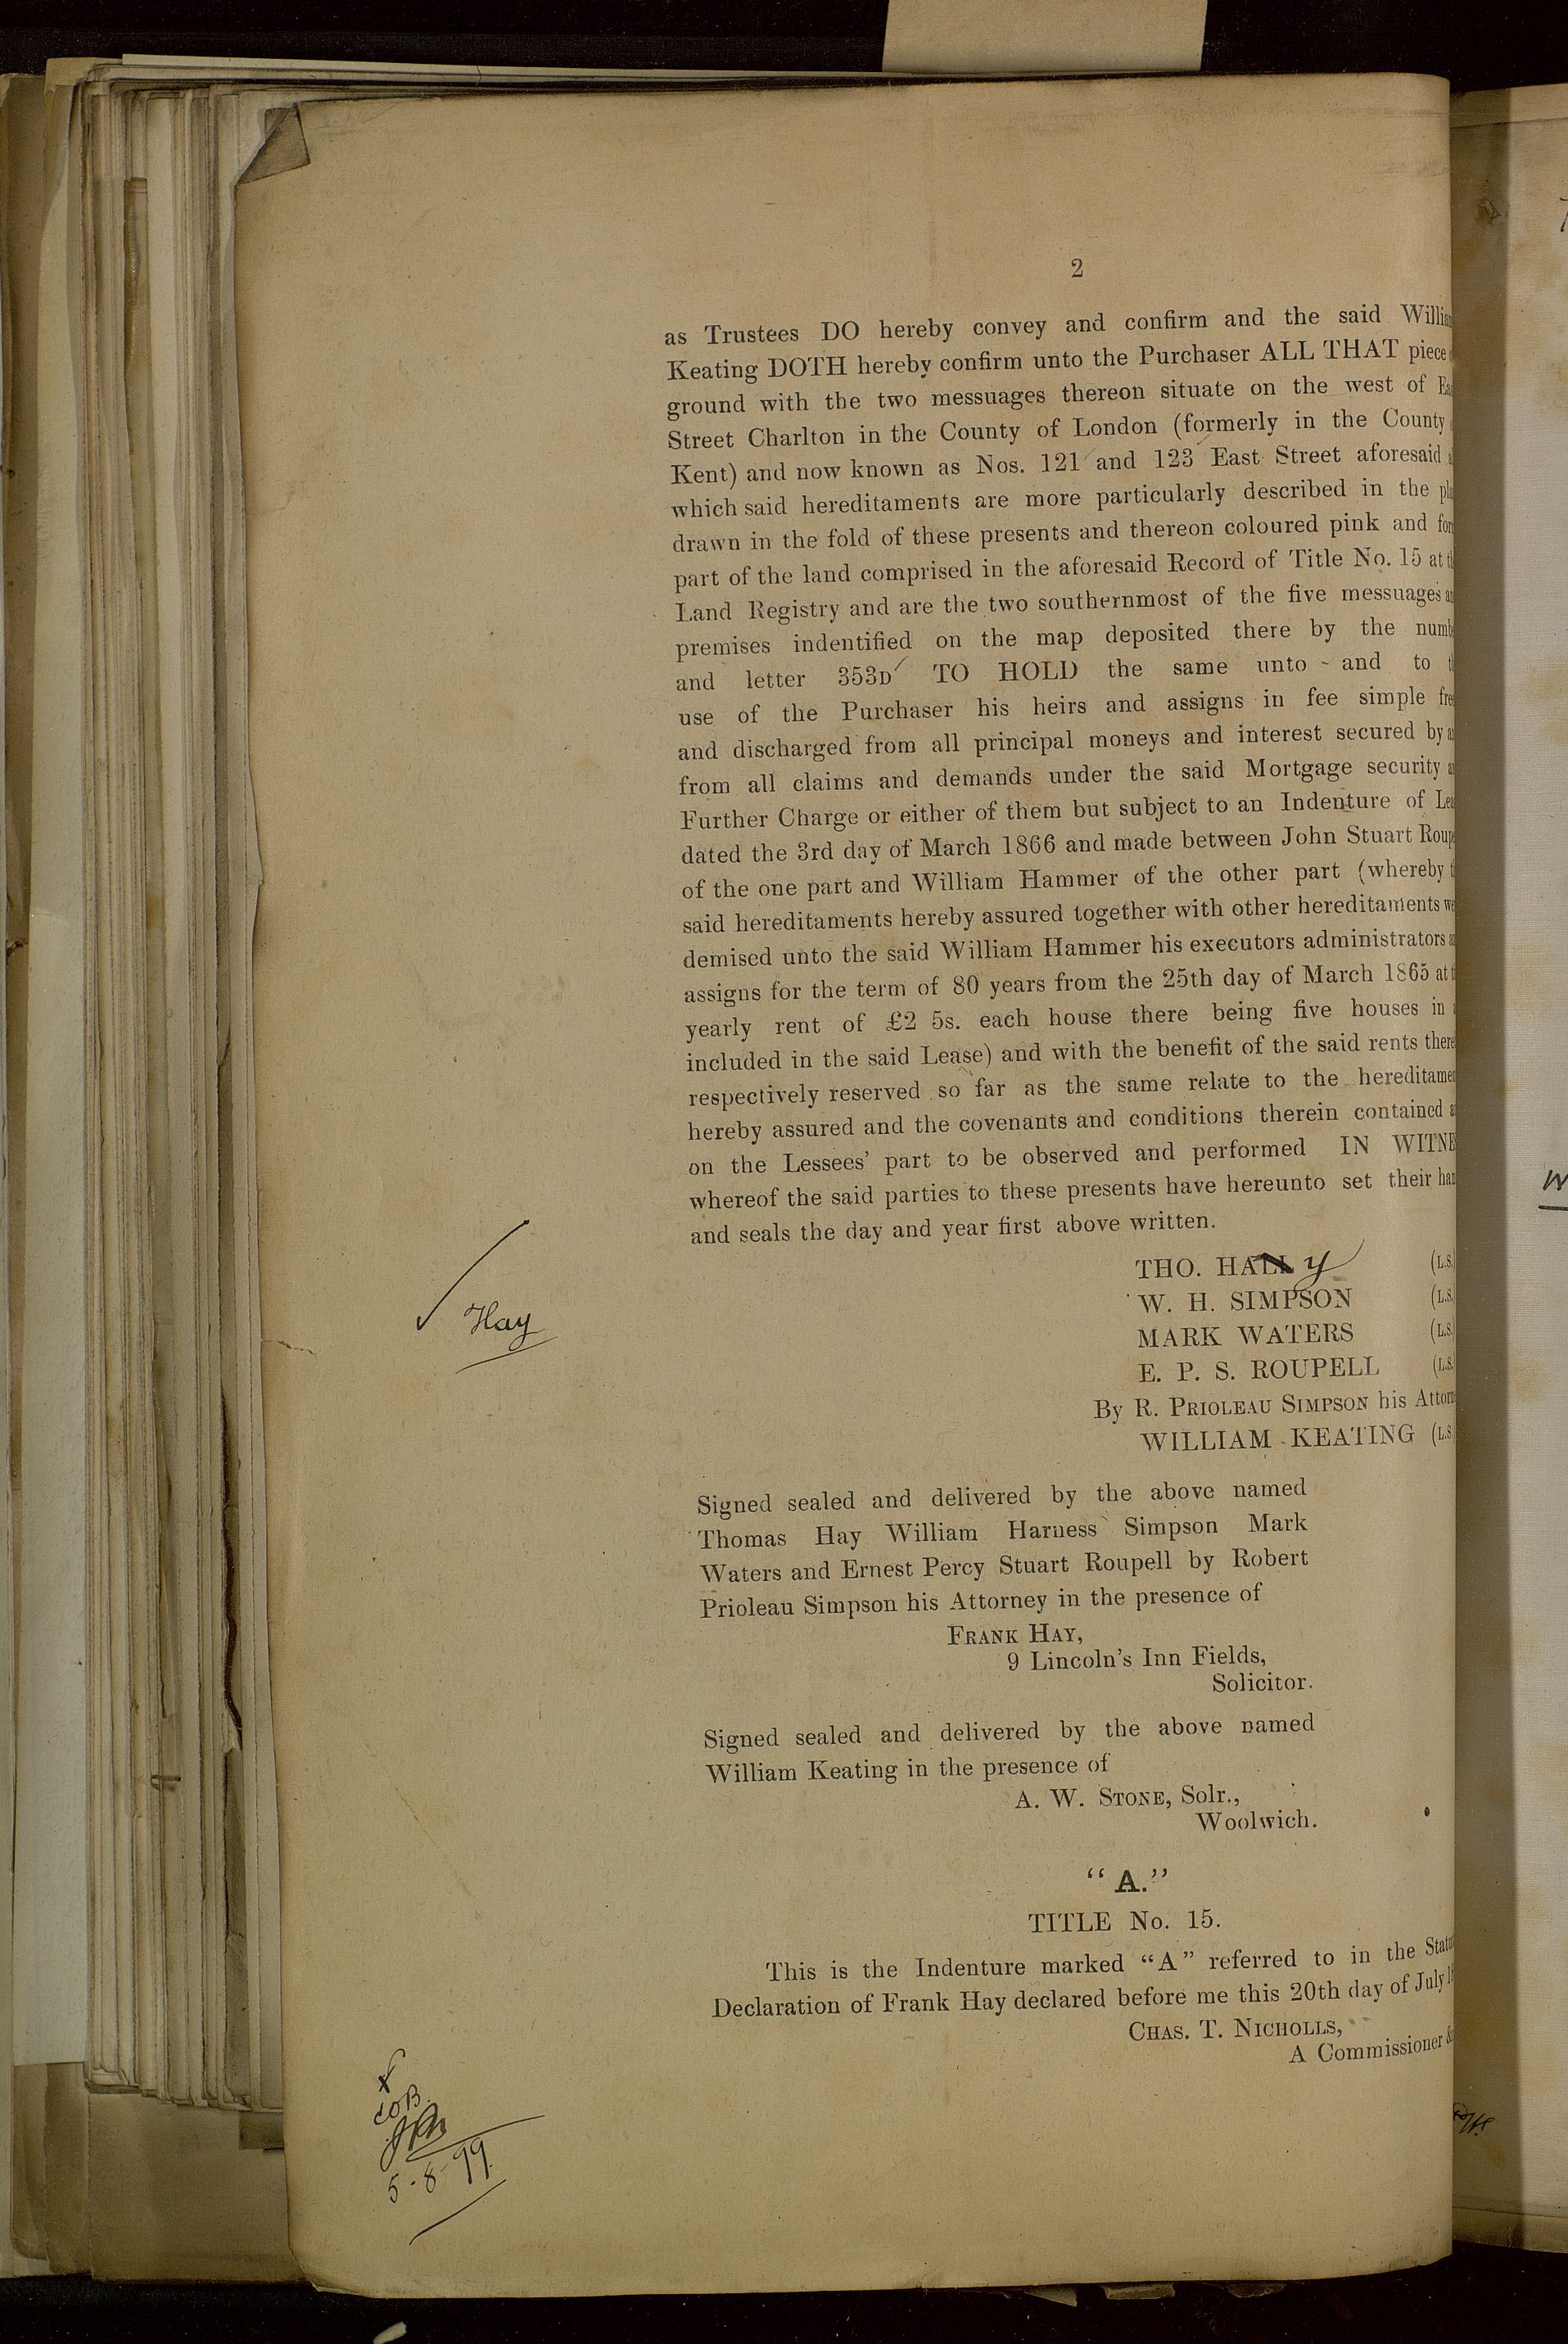 2
as Trustees DO hereby convey and confirm and the said Willia
Keating DOTH hereby confirm unto the Purchaser ALL THAT piece
ground with the two messuages thereon situate on the west of Ea
Street Charlton in the County of London (formerly in the County
Kent) and now known as Nos. 121 and 123 East Street aforesaid
which said hereditaments are more particularly described in the pl
drawn in the fold of these presents and thereon coloured pink and for
part of the land comprised in the aforesaid Record of Title No. 15 at t
Land Registry and are the two southernmost of the five messuages a
premises indentified on the map deposited there by the numb
and letter 353D TO HOLD the same unto and to t
use of the Purchaser his heirs and assigns in fee simple fre
and discharged from all principal moneys and interest secured by a
from all claims and demands under the said Mortgage security a
Further Charge or either of them but subject to an Indenture of Lea
dated the 3rd day of March 1866 and made between John Stuart Roup
of the one part and William Hammer of the other part (whereby t
said hereditaments hereby assured together with other hereditaments we
demised unto the said William Hammer his executors administrators a
assigns for the term of 80 years from the 25th day of March 1865 at t
yearly rent of £2 5s. each house there being five houses in
included in the said Lease) and with the benefit of the said rents there
respectively reserved so far as the same relate to the hereditamen
hereby assured and the covenants and conditions therein contained a
on the Lessees' part to be observed and performed IN WITNE
whereof the said parties to these presents have hereunto set their han
and seals the day and year first above written.
THO. HALL y (L.S.
Hay
W. H. SIMPSON (L.S.
MARK WATERS (L.S.
E. P. S. ROUPELL (L.S.
By R. PRIOLEAU SIMPSON his Attorn
WILLIAM KEATING (L.S
Signed sealed and delivered by the above named
Thomas Hay William Harness Simpson Mark
Waters and Ernest Percy Stuart Roupell by Robert
Prioleau Simpson his Attorney in the presence of
FRANK HAY,
9 Lincoln's Inn Fields,
Solicitor.
Signed sealed and delivered by the above named
William Keating in the presence of
A. W. STONE, Solr.,
Woolwich.
"A."
TITLE No. 15.
This is the Indenture marked "A" referred to in the Statu
Declaration of Frank Hay declared before me this 20th day of July 1
CHAS. T. NICHOLLS,
A Commissioner &
5-8-99